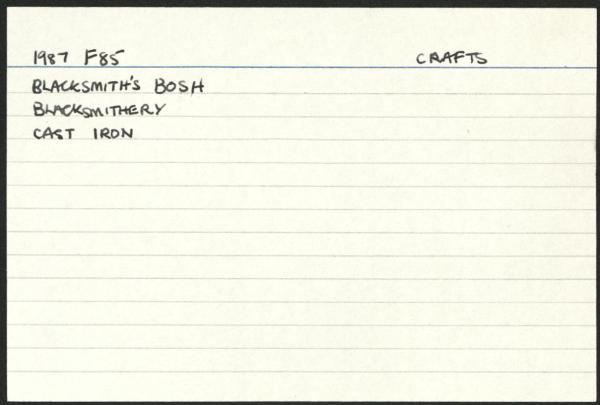 1987 F85 CRAFTS
BLACKSMITH'S BOSH
BLACKSMITHERY
CAST IRON